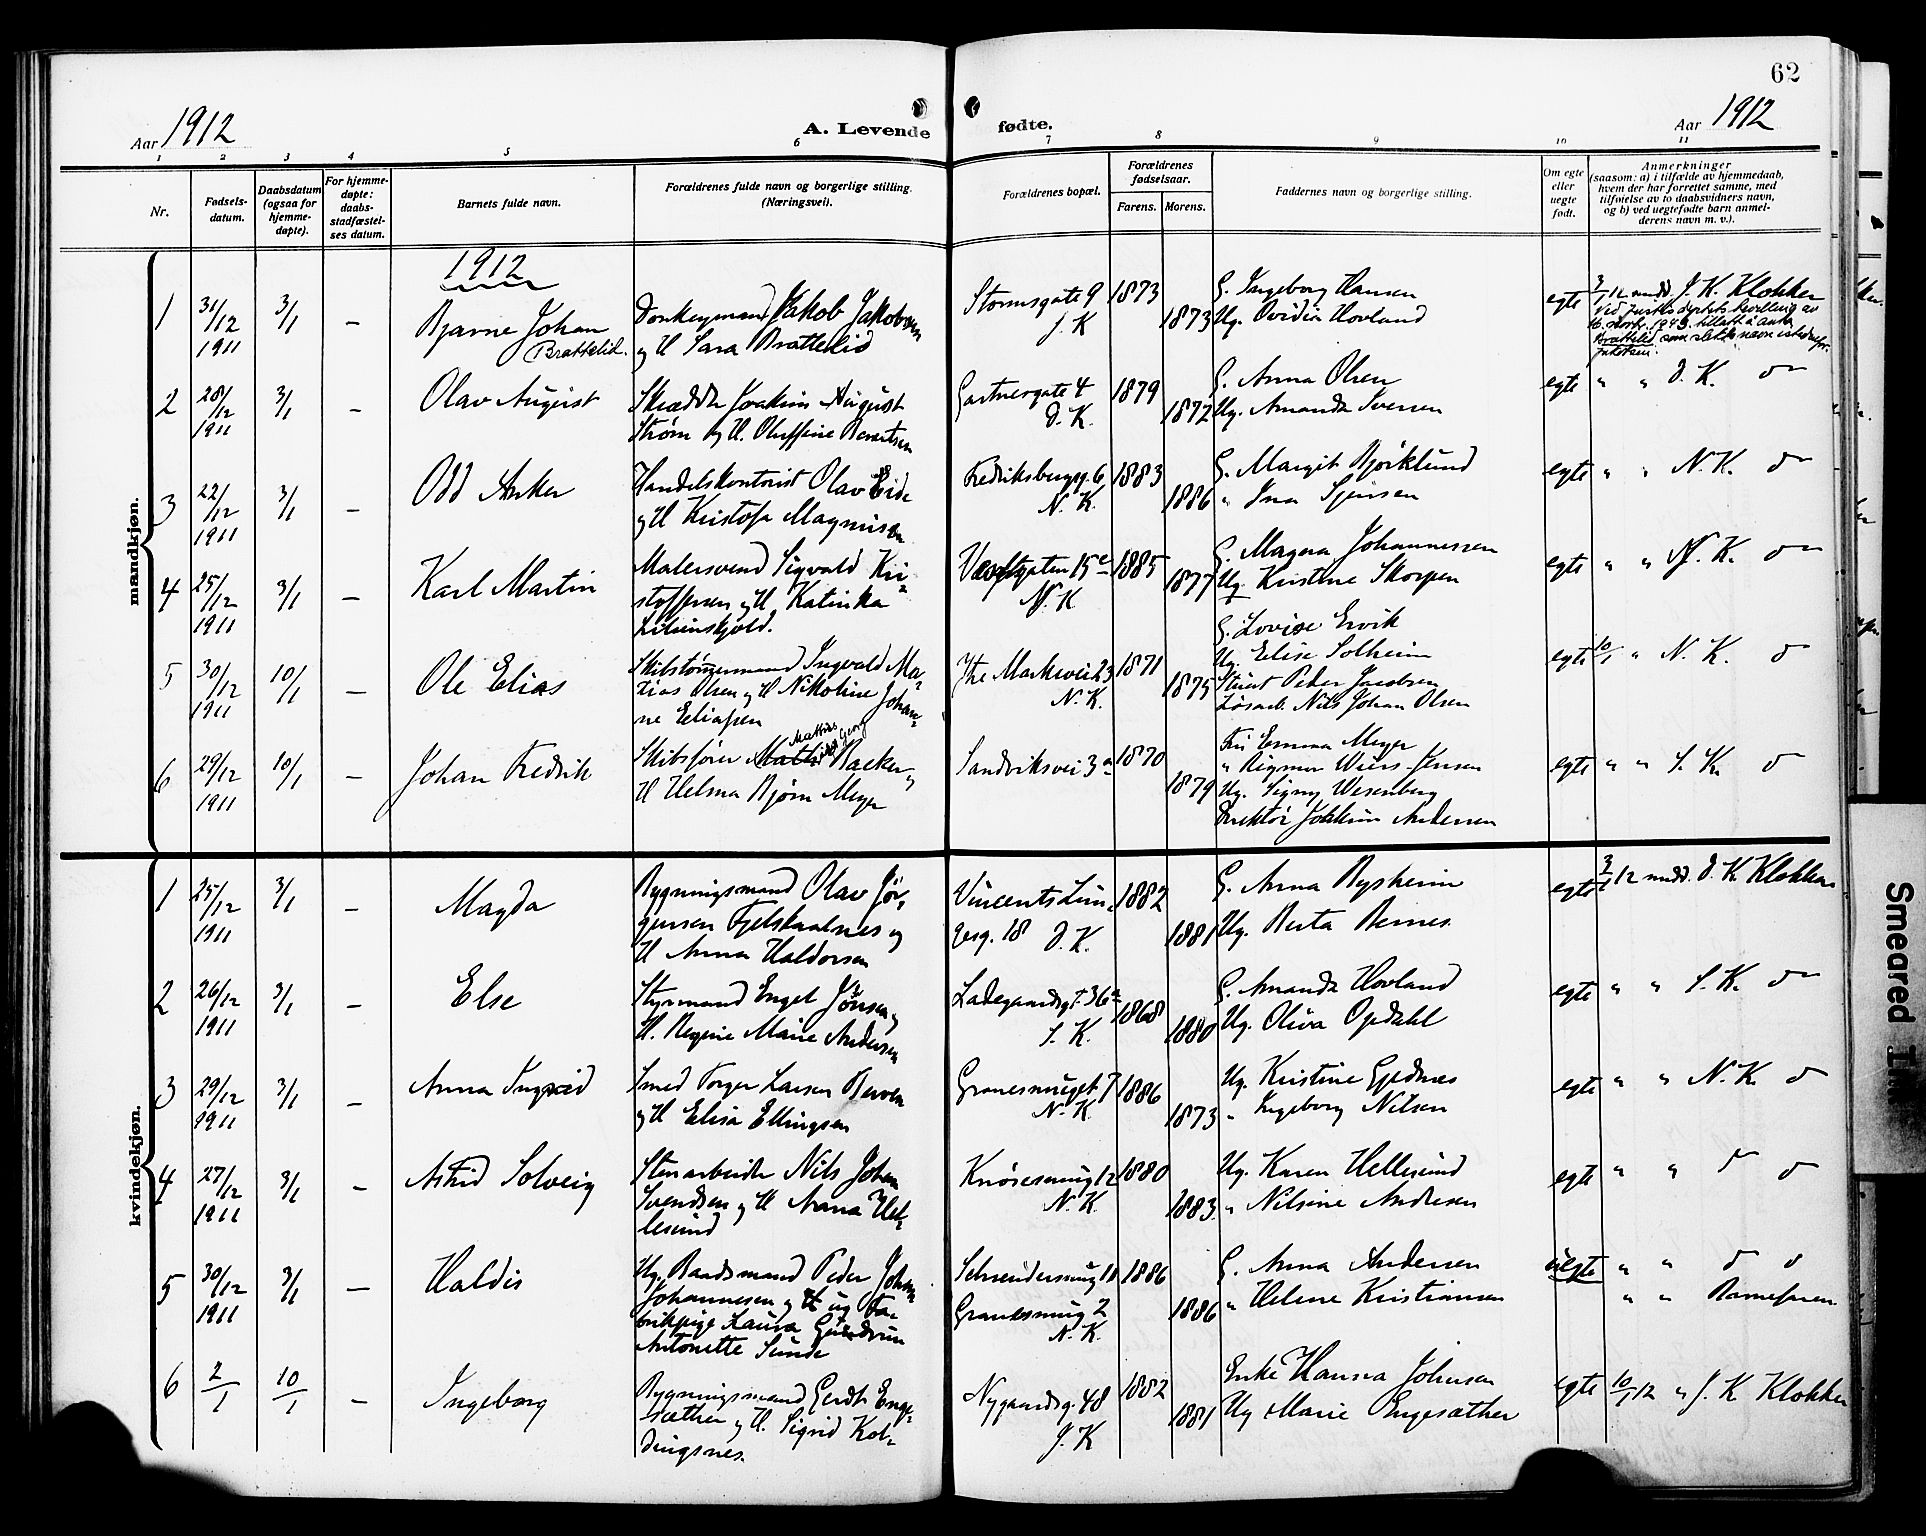 62
Aar 1912
A. Levende fødte.
Aar 1912
1 2 3 4 5 6 7 8 9 10 11
Nr.
Fødsels-
datum.
Daabsdatum
(ogsaa for
hjemme-
døpte).
For hjemme-
døpte:
daabs-
stadfæstel-
ses datum.
Barnets fulde navn.
Forældrenes fulde navn og borgerlige stilling.
(Næringsvei).
Forældrenes bopæl.
Forældrenes
fødselsaar.
Farens. Morens.
Faddernes navn og borgerlige stilling.
Om egte
eller
uegte
født.
Anmerkninger
(saasom: a) i tilfælde av hjemmedaab,
hvem der har forrettet samme, med
tilføielse av to daabsvidners navn,
og b) ved uegtefødte barn anmel-
derens navn m. v.).
mandkjøn.
1912
1
31/12
1911
3/1
—
Bjarne Johan
Brattelid.
Donkeymand Jakob Jakobsen
og H Sara Brattelid
Stormsgate 9
J. K
1873
1873
G. Ingeborg Hansen
Ug. Ovidia Hovland
egte
3/1 12 medd J. K. Klokker
Ved Justisdeptets bevilling av
1943 tillatt å anta
Brattelid som slektsnavn istedenfor
Jakobsen.
2
28/12
1911
3/1
—
Olav August
Skrædder Joakim August
Strøm og H. Oluffine Berntsen
Gartnergate 4
D. K.
1879
1872
G. Anna Olsen
Ug. Amanda Iversen
egte
" " D. K. do
3
22/12
1911
3/1
—
Odd Anker
Handelskontorist Olav Eide
og H Kristofa Magnusen
Fredriksbergg. 6
N. K.
1883
1886
G. Margit Bjørklund
" Ina
egte
" " N. K. do
4
25/12
1911
3/1
—
Karl Martin
Malersvend Sigvald Kri-
stoffersen og H. Katinka
Lilienskjold.
15 c
N. K
1885
1877
G. Magna Johannessen
Ug. Kristine Skorpen
egte
" " N. K. do
5
30/12
1911
10/1
—
Ole Elias
Ingvald Ma-
tias Olsen og H Nikoline Johan-
ne Eliassen
Ytre Markevei 23
N. K.
1871
1875
G. Lovise Ervik
Ug. Elise Solheim
Stuert Peder Jacobsen
Løsarb. Nils Johan Olsen
egte
10/1 " N. K. do
6
29/12
1911
10/1
—
Johan Fredrik
Mathias
Georg
Skibsfører Backer og
H Helma Bjørn Meyer
Sandviksvei 3 a
1870
1879
Fru Emma Meyer
" Rigmor Wiers-Jensen
Ug. Signy Wesenberg
Direktør Joakim Andersen
egte
" " S. K. do
kvindekjøn.
1
25/12
1911
3/1
—
Magda
Bygningsmand Olav Jør-
gensen Fjelskaalnes og
H Anna Haldorsen
Vincents Lun-
gesg. 18 J. K.
1882
1881
G. Anna Rysheim
Ug. Berta Bernes
egte
3/1 12 medd. J. K Klokker
2
26/12
1911
3/1
—
Else
Styrmand Engel Jönsen og
H. Regine Marie Andersen
Ladegaardsgt. 36 a
S. K.
1868
1880
G. Amanda Hovland
Ug. Oliva Opdahl
egte
" " S. K. do
3
29/12
1911
3/1
—
Anna Ingrid
Smed Torger Larsen Berven
og H Elisa Ellingsen
Granesmuget 7
N. K.
1886
1873
Ug. Kristine Gjednes
" Ingeborg Nilsen
egte
" " N. K. do
4
27/12
1911
3/1
—
Astrid Solveig
Stenarbeider Nils Johan
Svendsen og H Anna Hel-
lesund
Knøsesmug 12
N. K.
1880
1883.
Ug. Karen Hellesund
" Nilsine Andresen
egte
" " do do
5
30/12
1911
3/1
—
Haldis
Ug. Baadsmand Peder Johan
Johannesen og ug Fa-
brikpige Laura Gudrun
Antonette Sunde
Schreudersmug 18
Granesmug 2
N. K.
1886
1886
G. Anna Andersen
" Helene Kristiansen
uegte
" " do do
" " Barnefaren
6
2/1
10/1
—
Ingeborg
Bygningsmand Gerdt Enge-
sæther og H. Sigrid Kol-
dingsnes.
Nygaardsg. 48
J. K
1882
1881
Enke Hansna Johnsen
Ug Marie Engesæther
egte
10/1 12 " J. K Klokker
Smeared